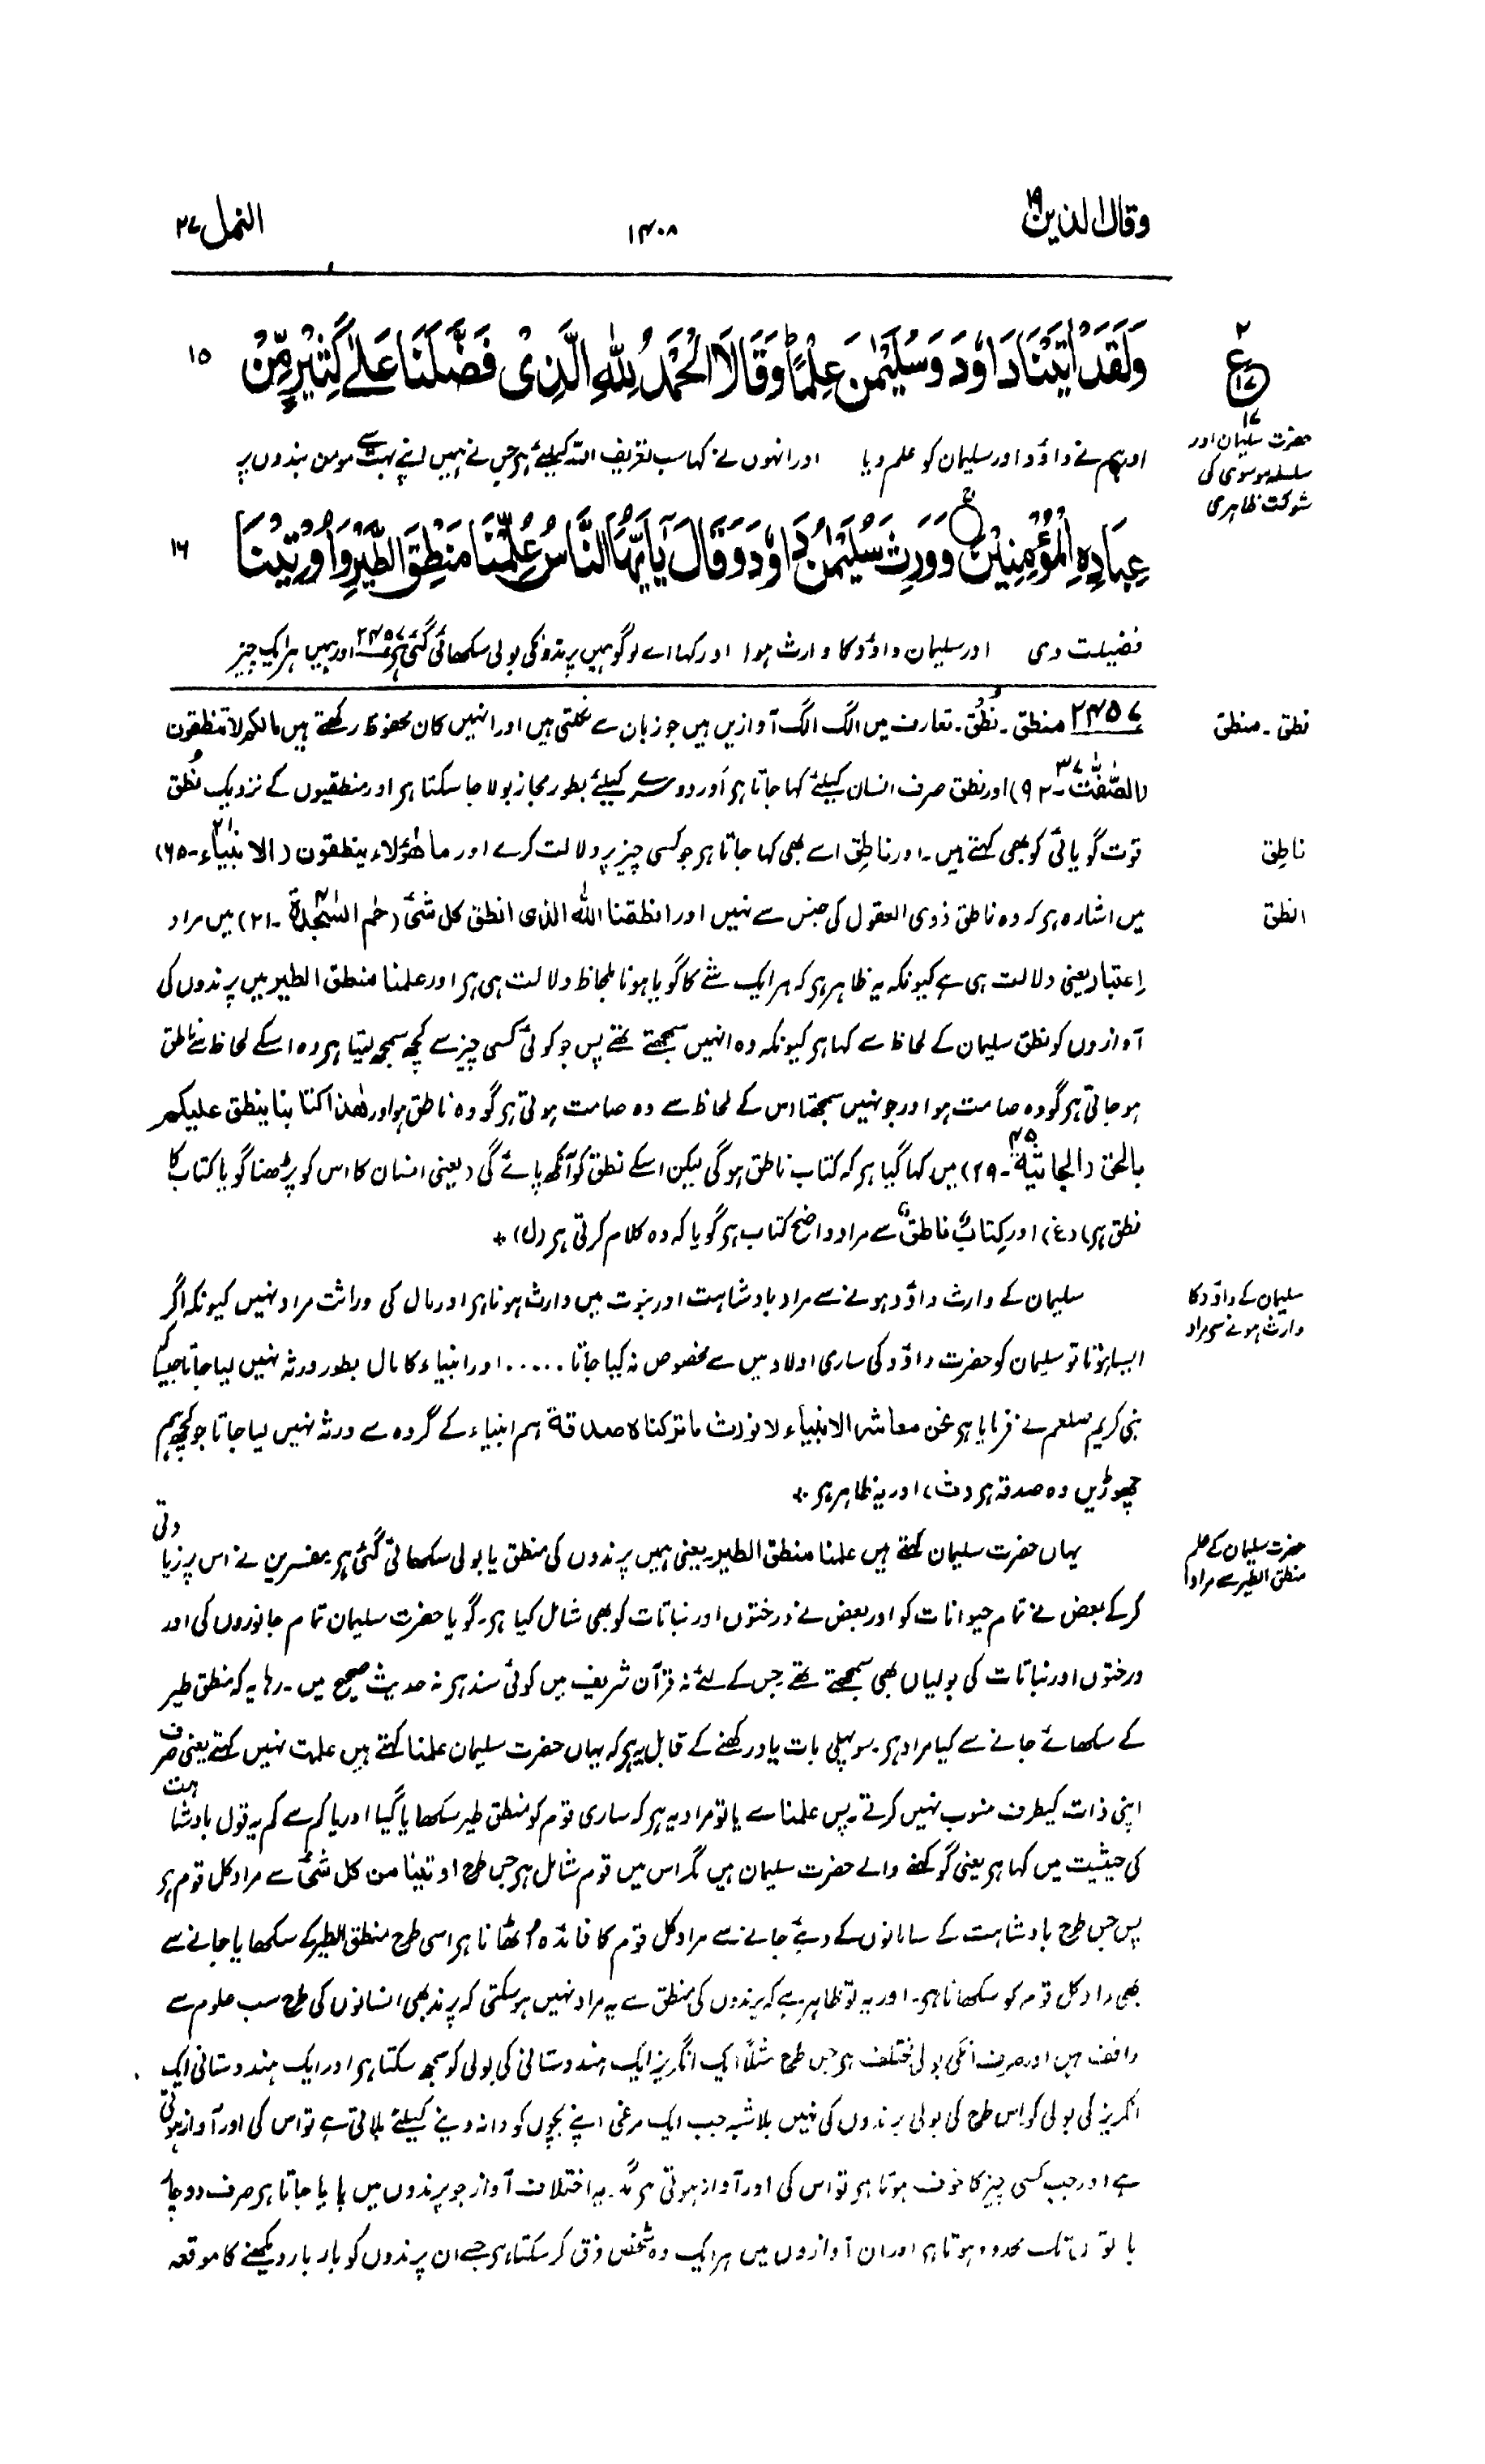 وقال الذین ۱۹
۱۴۰۸
النمل ۲۷
وَلَقَدْ اٰتَیْنَا دَاوٗدَ وَسُلَیْمٰنَ عِلْمًا ۚ وَقَالَا الْحَمْدُ لِلّٰهِ الَّذِیْ فَضَّلَنَا عَلٰی كَثِیْرٍ مِّنْ
۱۵
۲
ع
۱۷
۱۷
اور ہم نے داؤد اور سلیمان کو علم دیا اور انہوں نے کہا سب تعریف اللہ کیلئے ہے جس نے ہمیں اپنے بہت سے مومن بندوں پر
حضرت سلیمان اور
سلسلہ موسوی کی
شوکت ظاہری
عِبَادِهِ الْمُؤْمِنِیْنَ ○ وَوَرِثَ سُلَیْمٰنُ دَاوٗدَ وَقَالَ یٰۤاَیُّهَا النَّاسُ عُلِّمْنَا مَنْطِقَ الطَّیْرِ وَاُوْتِیْنَا
۱۶
فضیلت دی اور سلیمان داؤد کا وارث ہوا اور کہا اے لوگو ہمیں پرندوں کی بولی سکھائی گئی ہے ۲۴۵۷ اور ہمیں ہر ایک چیز
۲۴۵۷ منطق ۔ نُطق ۔ تعارف میں الگ الگ آوازیں ہیں جو زبان سے نکلتی ہیں اور انہیں کان محفوظ رکھتے ہیں مالکم لا تنطقون
نطق ۔ منطق
(الصّٰفّٰت ۳۷ ۔ ۹۲) اور نطق صرف انسان کیلئے کہا جاتا ہے اور دوسرے کیلئے بطور مجاز بولا جا سکتا ہے اور منطقیوں کے نزدیک نُطق
قوت گویائی کو بھی کہتے ہیں ۔ اور ناطِق اسے بھی کہا جاتا ہے جو کسی چیز پر دلالت کرے اور ما هٰؤلاء ینطقون (الانبیاء ۲۱ ۔ ۶۵)
ناطِق
میں اشارہ ہے کہ وہ ناطق ذوی العقول کی جنس سے نہیں اور انطقنا الله الذی انطق کل شئ (حٰم السجدة ۴۱ ۔ ۲۱) میں مراد
انطق
اعتبار یعنی دلالت ہی ہے کیونکہ یہ ظاہر ہے کہ ہر ایک شے کا گویا ہونا بلحاظ دلالت ہی ہے اور علمنا منطق الطیر میں پرندوں کی
آوازوں کو نطق سلیمان کے لحاظ سے کہا ہے کیونکہ وہ انہیں سمجھتے تھے پس جو کوئی کسی چیز سے کچھ سمجھ لیتا ہے وہ اسکے لحاظ سے ناطق
ہو جاتی ہے گو وہ صامت ہو اور جو نہیں سمجھتا اس کے لحاظ سے وہ صامت ہوتی ہے گو وہ ناطق ہو اور هٰذا کتابنا ینطق علیکم
بالحق (الجاثیة ۴۵ ۔ ۲۹) میں کہا گیا ہے کہ کتاب ناطق ہوگی لیکن اسکے نطق کو آنکھ پائے گی (یعنی انسان کا اس کو پڑھنا گویا کتاب کا
نطق ہے) (غ) اور کِتابٌ ناطقٌ سے مراد واضح کتاب ہے گویا کہ وہ کلام کرتی ہے (ل) +
سلیمان کے وارث داؤد ہونے سے مراد بادشاہت اور نبوت میں وارث ہونا ہے اور مال کی وراثت مراد نہیں کیونکہ اگر
سلیمان کے داؤد کا
وارث ہونے سے مراد
ایسا ہوتا تو سلیمان کو حضرت داؤد کی ساری اولاد میں سے مخصوص نہ کیا جاتا ..... اور انبیاء کا مال بطور ورثہ نہیں لیا جاتا جیسا کہ
نبی کریم صلعم نے فرمایا ہے نحن معاشر الانبیاء لا نورث ما ترکناه صدقة ہم انبیاء کے گروہ سے ورثہ نہیں لیا جاتا جو کچھ ہم
چھوڑیں وہ صدقہ ہے (ث) اور یہ ظاہر ہے +
یہاں حضرت سلیمان کہتے ہیں علمنا منطق الطیر ۔ یعنی ہمیں پرندوں کی منطق یا بولی سکھائی گئی ہے مفسرین نے اس پر زیادتی
حضرت سلیمان کے علم
منطق الطیر سے مراد
کرکے بعض نے تمام حیوانات کو اور بعض نے درختوں اور نباتات کو بھی شامل کیا ہے ۔ گویا حضرت سلیمان تمام جانوروں کی اور
درختوں اور نباتات کی بولیاں بھی سمجھتے تھے جس کے لئے نہ قرآن شریف میں کوئی سند ہے نہ حدیث صحیح میں ۔ رہا یہ کہ منطق طیر
کے سکھائے جانے سے کیا مراد ہے ۔ سو پہلی بات یاد رکھنے کے قابل یہ ہے کہ یہاں حضرت سلیمان علمنا کہتے ہیں علمت نہیں کہتے یعنی صرف
اپنی ذات کیطرف منسوب نہیں کرتے ۔ پس علمنا سے یا تو مراد یہ ہے کہ ساری قوم کو منطق طیر سکھایا گیا اور یا کم سے کم یہ قول بادشاہت
کی حیثیت میں کہا ہے یعنی گو کہنے والے حضرت سلیمان ہیں مگر اس میں قوم شامل ہے جس طرح اوتینا من کل شئ سے مراد کل قوم ہے
پس جس طرح بادشاہت کے سامانوں کے دیئے جانے سے مراد کل قوم کا فائدہ اُٹھانا ہے اسی طرح منطق الطیر کے سکھایا جانے سے
بھی مراد کل قوم کو سکھانا ہے ۔ اور یہ تو ظاہر ہے کہ پرندوں کی منطق سے یہ مراد نہیں ہو سکتی کہ پرند بھی انسانوں کی طرح سب علوم سے
واقف ہیں اور صرف انکی بولی مختلف ہے جس طرح مثلاً ایک انگریز ایک ہندوستانی کی بولی کو سمجھ سکتا ہے اور ایک ہندوستانی ایک
انگریز کی بولی کو اس طرح کی بولی پرندوں کی نہیں بلاشبہ جب ایک مرغی اپنے بچوں کو دانہ دینے کیلئے بلاتی ہے تو اس کی اور آواز ہوتی
ہے اور جب کسی چیز کا خوف ہوتا ہے تو اس کی اور آواز ہوتی ہے مگر یہ اختلاف آواز جو پرندوں میں پایا جاتا ہے صرف دو چار
باتوں تک محدود ہوتا ہے اور ان آوازوں میں ہر ایک وہ شخص فرق کر سکتا ہے جسے ان پرندوں کو بار بار دیکھنے کا موقعہ